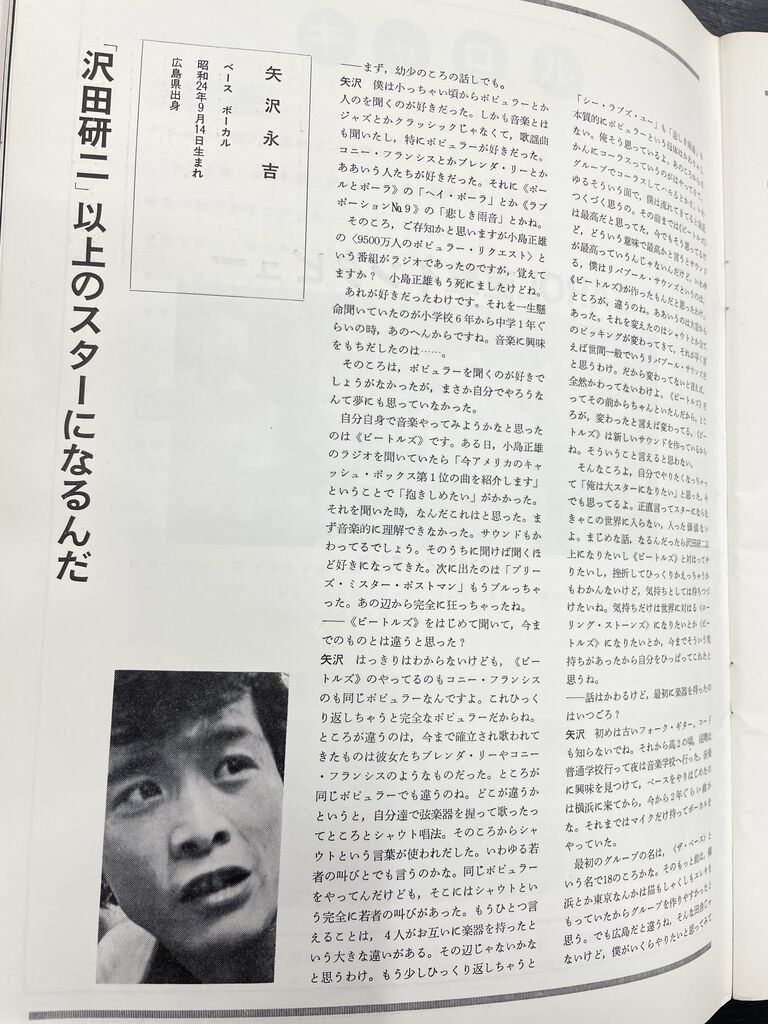 「沢田研二」以上のスターになるんだ
矢沢永吉
ベース ボーカル
昭和24年9月14日生まれ
広島県出身
——まず，幼少のころの話しでも。
矢沢　僕は小っちゃい頃からポピュラーとか
人のを聞くのが好きだった。しかも音楽とは
ジャズとかクラシックじゃなくて，歌謡曲
も聞いたし，特にポピュラーが好きだった。
コニー・フランシスとかブレンダ・リーとか
ああいう人たちが好きだった。それに《ポー
ルとポーラ》の「ヘイ・ポーラ」とか《ラブ
ポーション№9》の「悲しき雨音」とかね。
そのころ，ご存知かと思いますが小島正雄
の〈9500万人のポピュラー・リクエスト〉と
いう番組がラジオであったのですが，覚えて
ますか？　小島正雄もう死にましたけどね。
あれが好きだったわけです。それを一生懸
命聞いていたのが小学校6年から中学1年ぐ
らいの時，あのへんからですね。音楽に興味
をもちだしたのは……。
そのころは，ポピュラーを聞くのが好きで
しょうがなかったが，まさか自分でやろうな
んて夢にも思っていなかった。
自分自身で音楽やってみようかなと思った
のは《ビートルズ》です。ある日，小島正雄
のラジオを聞いていたら「今アメリカのキャ
ッシュ・ボックス第1位の曲を紹介します」
ということで「抱きしめたい」がかかった。
それを聞いた時，なんだこれはと思った。ま
ず音楽的に理解できなかった。サウンドもか
わってるでしょう。そのうちに聞けば聞くほ
ど好きになってきた。次に出たのは「プリー
ズ・ミスター・ポストマン」もうブルっちゃ
った。あの辺から完全に狂っちゃったね。
——《ビートルズ》をはじめて聞いて，今ま
でのものとは違うと思った？
矢沢　はっきりはわからないけども，《ビー
トルズ》のやってるのもコニー・フランシス
のも同じポピュラーなんですよ。これひっく
り返しちゃうと完全なポピュラーだからね。
ところが違うのは，今まで確立され歌われて
きたものは彼女たちブレンダ・リーやコニー
・フランシスのようなものだった。ところが
同じポピュラーでも違うのね。どこが違うか
というと，自分達で弦楽器を握って歌ったっ
てところとシャウト唱法。そのころからシャ
ウトという言葉が使われだした。いわゆる若
者の叫びとでも言うのかな。同じポピュラー
をやってんだけども，そこにはシャウトとい
う完全に若者の叫びがあった。もうひとつ言
えることは，4人がお互いに楽器を持ったと
いう大きな違いがある。その辺じゃないかな
と思うわけ。もう少しひっくり返しちゃうと
「シー・ラブズ・ユー」も「悲しき雨音」も
本質的にポピュラーという
ない。俺そう思っているよ。
かんにコーラスっていうのがはやってきて，
グループでコーラスしてハモるとかそういわ
ゆるそういう面で，僕は流れてきてると
つくづく思うの。その前までは《ビートルズ》
は最高だと思ってた，今でもそう思ってるけ
ど，どういう意味で最高かと言うとサウンド
が最高っていうんじゃないんだけど，いわゆ
る，僕はリバプール・サウンズというのは，
《ビートルズ》が作ったもんだと思ったわけ。
ところが，違うのね。ああいうのは大昔から
あった。それを変えたのはシャウトとか
のピッキングが変わってきて，それが早く言
えば世間一般でいうリバプール・サウンズだ
と思うわけ。だから変わってないと言えば，
全然かわってないわけよ。《ビートルズ》だ
ってその前からちゃんといたんだから。とこ
ろが，変わったと言えば変わってる。《ビー
トルズ》は新しいサウンドを作っているから
ね。そういうこと言えると思わない。
そんなころよ，自分でやりたくなっちゃっ
て「俺は大スターになりたい」と思った。今
でも思ってるよ。正直言ってスターにならな
きゃこの世界に入らない，入った価値ない
よ。まじめな話，なるんだったら沢田研二以
上になりたいし《ビートルズ》と対はってや
りたいし，挫折してひっくりかえっちゃうか
もわかんないけど，気持ちとしては持ちつづ
けたいね。気持ちだけは世界に対はる《ロー
リング・ストーンズ》になりたいとか《ビー
トルズ》になりたいとか，今までそういう気
持ちがあったから自分をひっぱってこれたと
思うね。
——話はわかるけど，最初に楽器を持ったの
はいつごろ？
矢沢　初めは古いフォーク・ギター，コード
も知らないでね。それから高2の頃，昼間は
普通学校行って夜は音楽学校へ行った。音楽
に興味を見つけて，ベースをやりはじめたの
は横浜に来てから，今から2年ぐらい前か
な。それまではマイクだけ持ってボーカルを
やっていた。
最初のグループの名は，《ザ・ベース》と
いう名で18のころかな。そのもっと前は，横
浜とか東京なんかは猫もしゃくしもエレキを
もっていたからグループを作りやすかったと
思う。でも広島だと違うね，そんな田舎じゃ
ないけど，僕がいくらやりたいと思ってみて